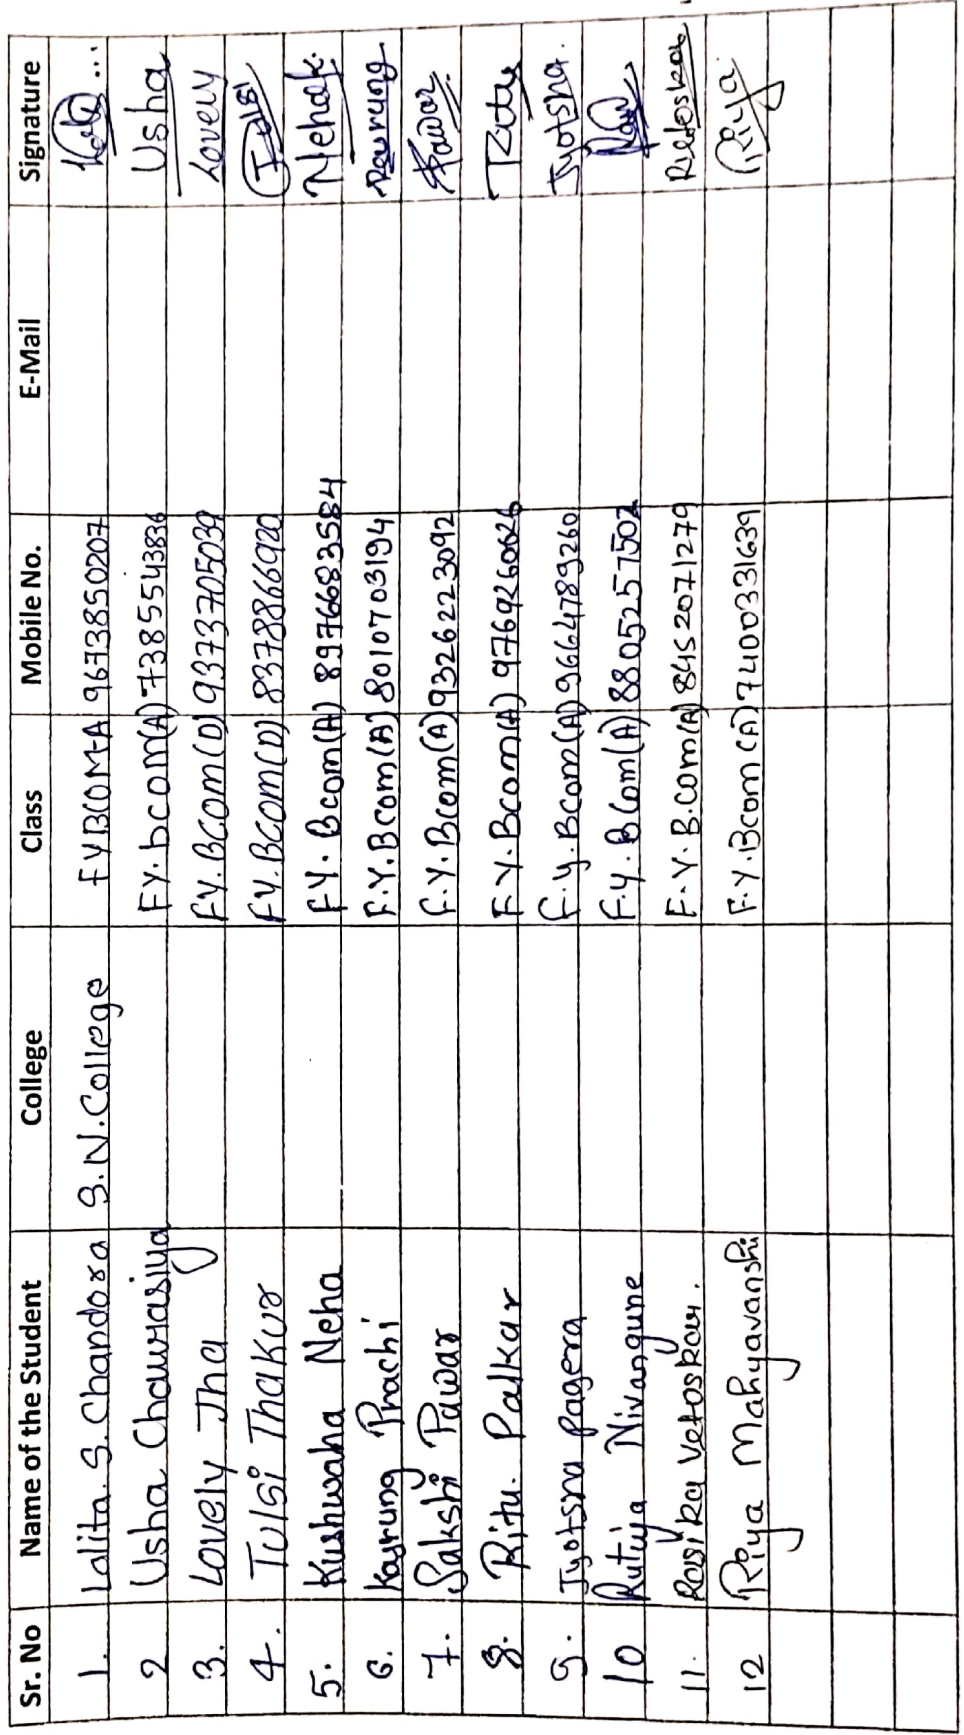 Sr. No Name of the Student College Class Mobile No. E-Mail Signature
1. Lalita. S. Chandora S.N.College FYBCOM-A 9673850207
2 Usha Chaurasiya FY.bcom(A) 7385543836 Usha
3. Lovely Jha FY.Bcom(D) 9373705039 Lovely
4. Tulsi Thakur FY.Bcom(D) 8378866920 Tulsi
5. Kushwaha Neha FY. Bcom(A) 8976683584 Nehak.
6. Kayrung Prachi F.Y.Bcom(A) 8010703194
7. Sakshi Pawar F.Y.Bcom(A) 9326223092 Pawar
8. Ritu. Palkar F.Y.Bcom(A) 9769260626 Ritu
9. Jyotsna Pagera F.Y.Bcom(A) 9664789260 Jyotsna.
10 Rutuja Nivangune F.Y.BCom(A) 8805257502
11. Rasika Vetoskar. F.Y.B.Com(A) 8452071279
12 Riya Mahyavanshi F.Y.Bcom(A) 7400331639 Riya